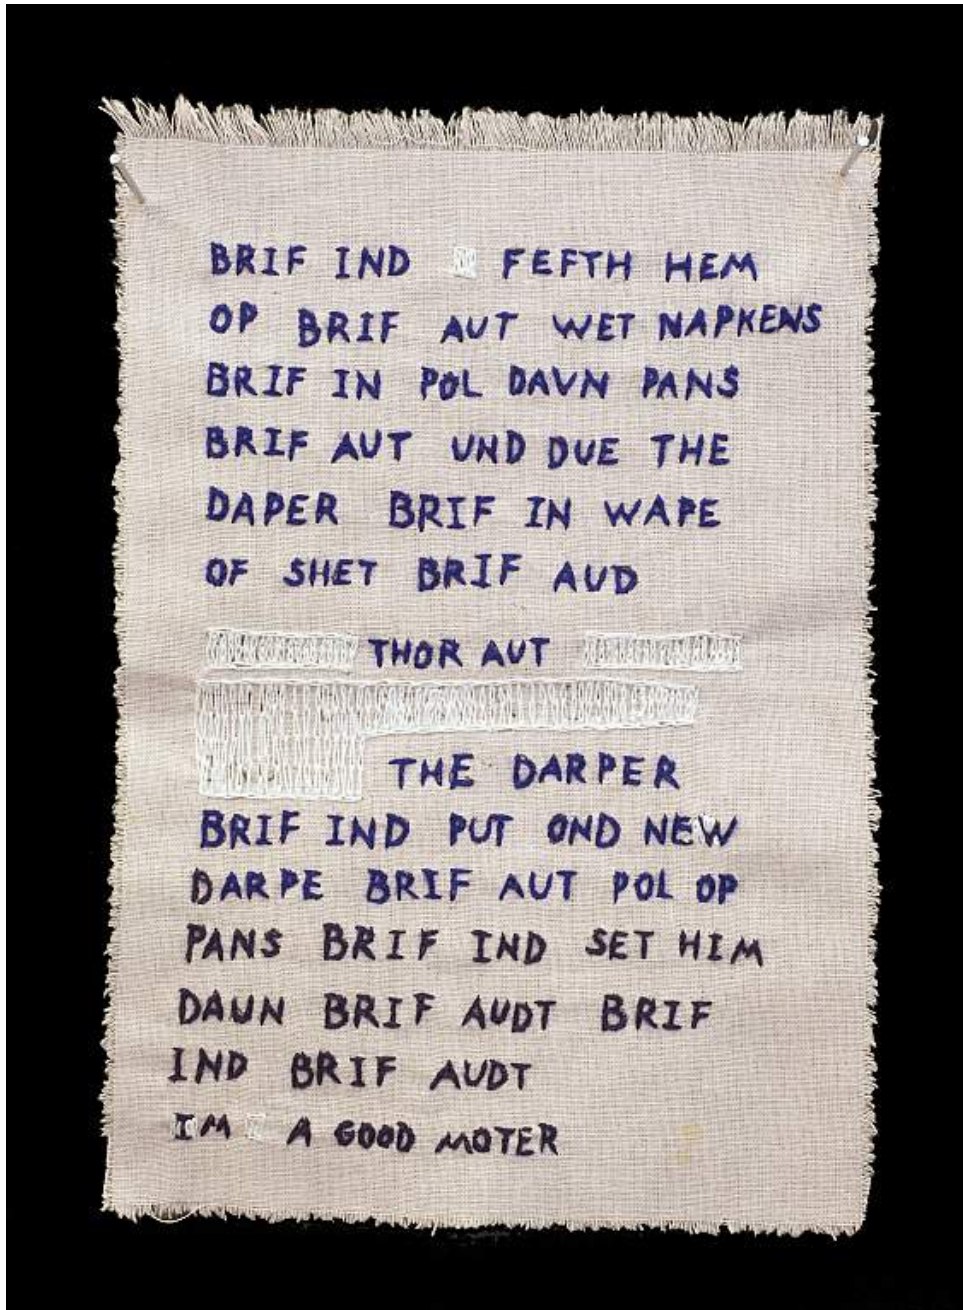 BRIF IND FEFTH HEM
OP BRIF AUT WET NAPKENS
BRIF IN POL DAVN PANS
BRIF AUT UND DUE THE
DAPER BRIF IN WAPE
OF SHET BRIF AUD
THOR AUT
THE DARPER
BRIF IND PUT OND NEW
DARPE BRIF AUT POL OP
PANS BRIF IND SET HIM
DAUN BRIF AUDT BRIF
IND BRIF AUDT
IM A GOOD MOTER